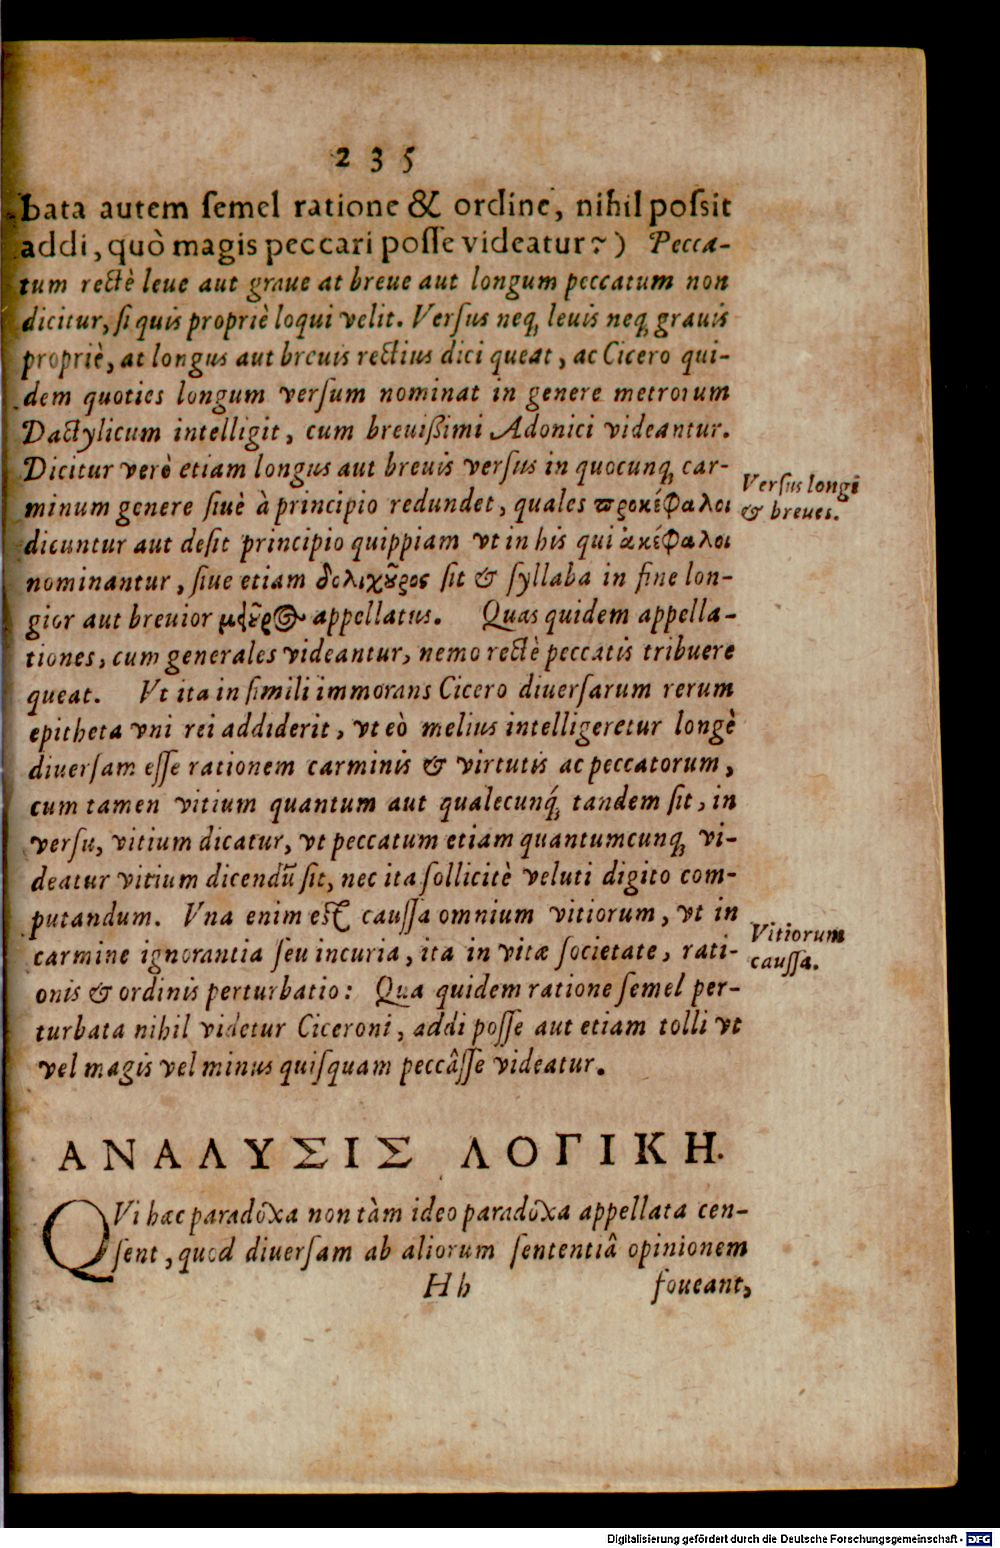 235
bata autem ſemel ratione & ordine, nihil poſsit
addi, quò magis peccari poſſe videatur?) Pecca-
tum rectè leue aut graue at breue aut longum peccatum non
dicitur, ſi quis propriè loqui velit. Verſus neq; leuis neq; grauis
propriè, at longus aut breuis rectius dici queat, ac Cicero qui-
dem quoties longum verſum nominat in genere metrorum
Dactylicum intelligit, cum breuiſsimi Adonici videantur.
Dicitur verò etiam longus aut breuis verſus in quocunq; car-
minum genere ſiuè à principio redundet, quales προκέφαλοι
Verſus longi
& breues.
dicuntur aut deſit principio quippiam vt in his qui ἀκέφαλοι
nominantur, ſiue etiam δολιχοῦρος ſit & ſyllaba in fine lon-
gior aut breuior μείουρος appellatus. Quas quidem appella-
tiones, cum generales videantur, nemo rectè peccatis tribuere
queat. Vt ita in ſimili immorans Cicero diuerſarum rerum
epitheta vni rei addiderit, vt eò melius intelligeretur longè
diuerſam eſſe rationem carminis & virtutis ac peccatorum,
cum tamen vitium quantum aut qualecunq́; tandem ſit, in
verſu, vitium dicatur, vt peccatum etiam quantumcunq; vi-
deatur vitium dicendũ ſit, nec ita ſollicitè veluti digito com-
putandum. Vna enim eſt cauſſa omnium vitiorum, vt in
carmine ignorantia ſeu incuria, ita in vitæ ſocietate, rati-
Vitiorum
cauſſa.
onis & ordinis perturbatio: Qua quidem ratione ſemel per-
turbata nihil videtur Ciceroni, addi poſſe aut etiam tolli vt
vel magis vel minus quiſquam peccâſſe videatur.
ΑΝΑΛΥΣΙΣ ΛΟΓΙΚΗ.
QVi hæc paradoxa non tàm ideo paradoxa appellata cen-
ſent, quod diuerſam ab aliorum ſententiâ opinionem
Hh foueant,
Digitalisierung gefördert durch die Deutsche Forschungsgemeinschaft - DFG